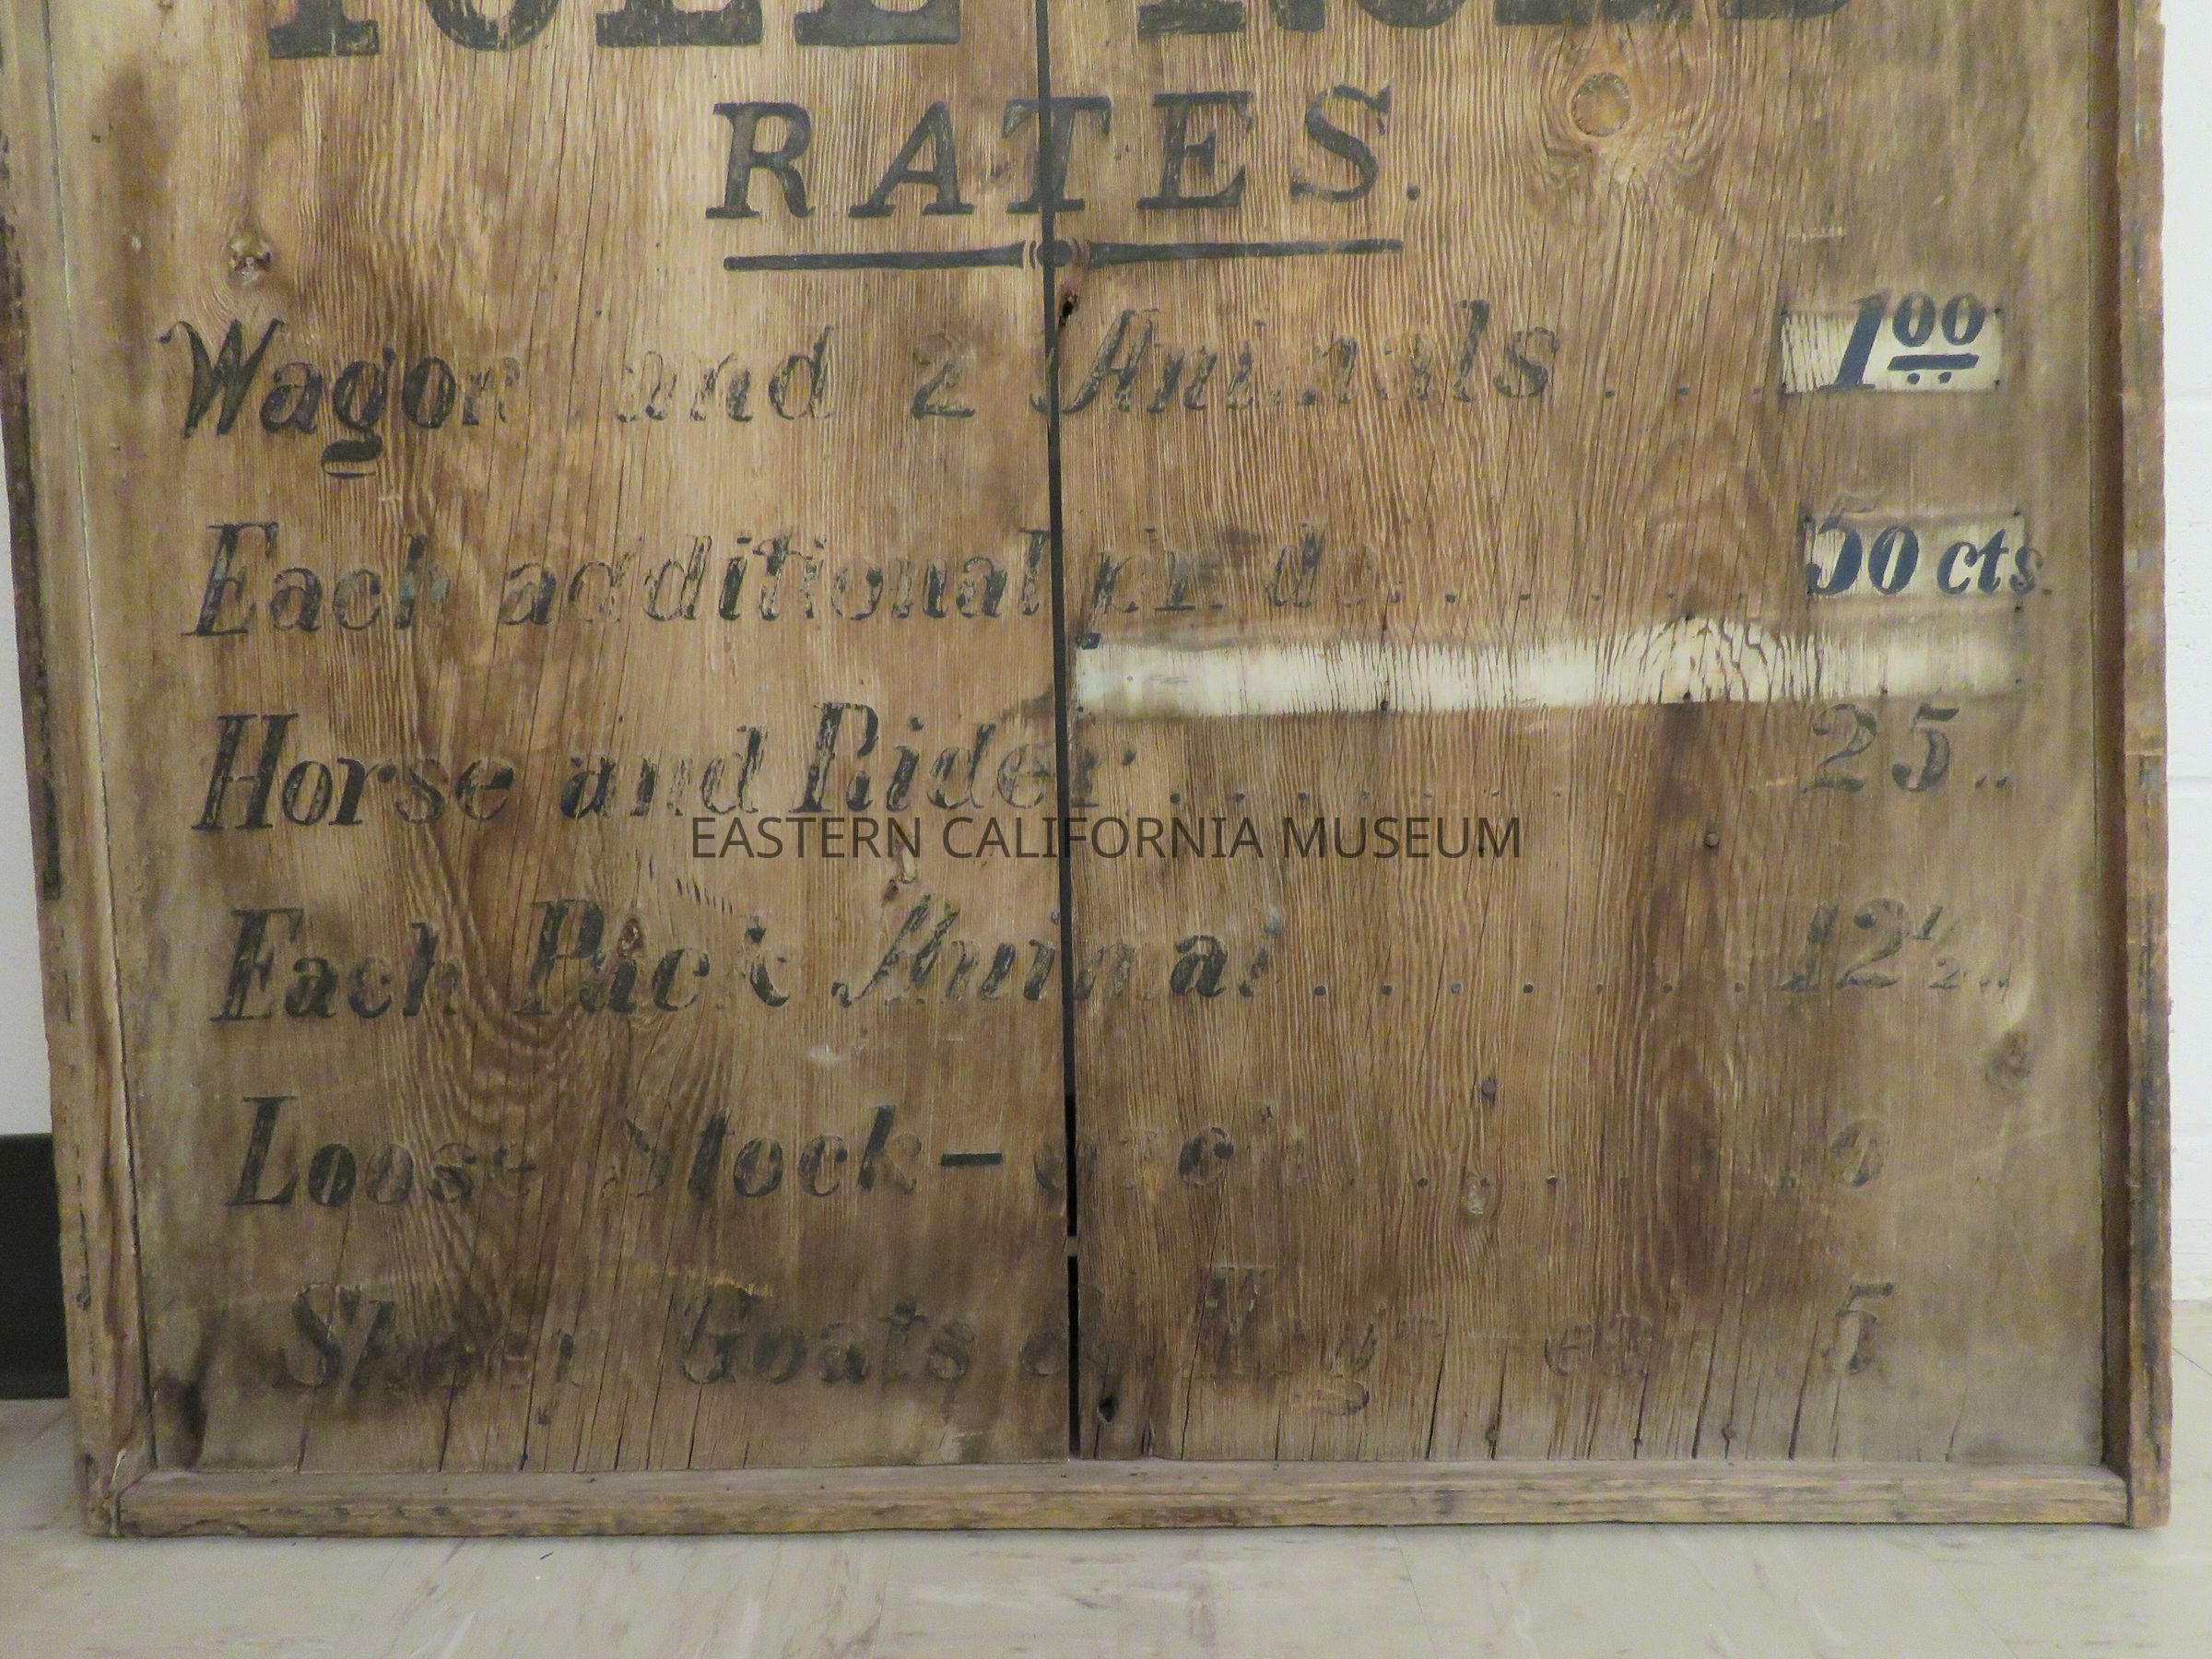 TOLL ROAD
RATES.
Wagon and 2 Animals . . . 1 00
Each additional pr. do. . . . . . 50 cts.
Horse and Rider. . . . . . . . . 25 ..
EASTERN CALIFORNIA MUSEUM
Each Pack Animal . . . . . . . 12 1/2 ..
Loose Stock - each . . . . .
Sheep Goats or Hogs 5